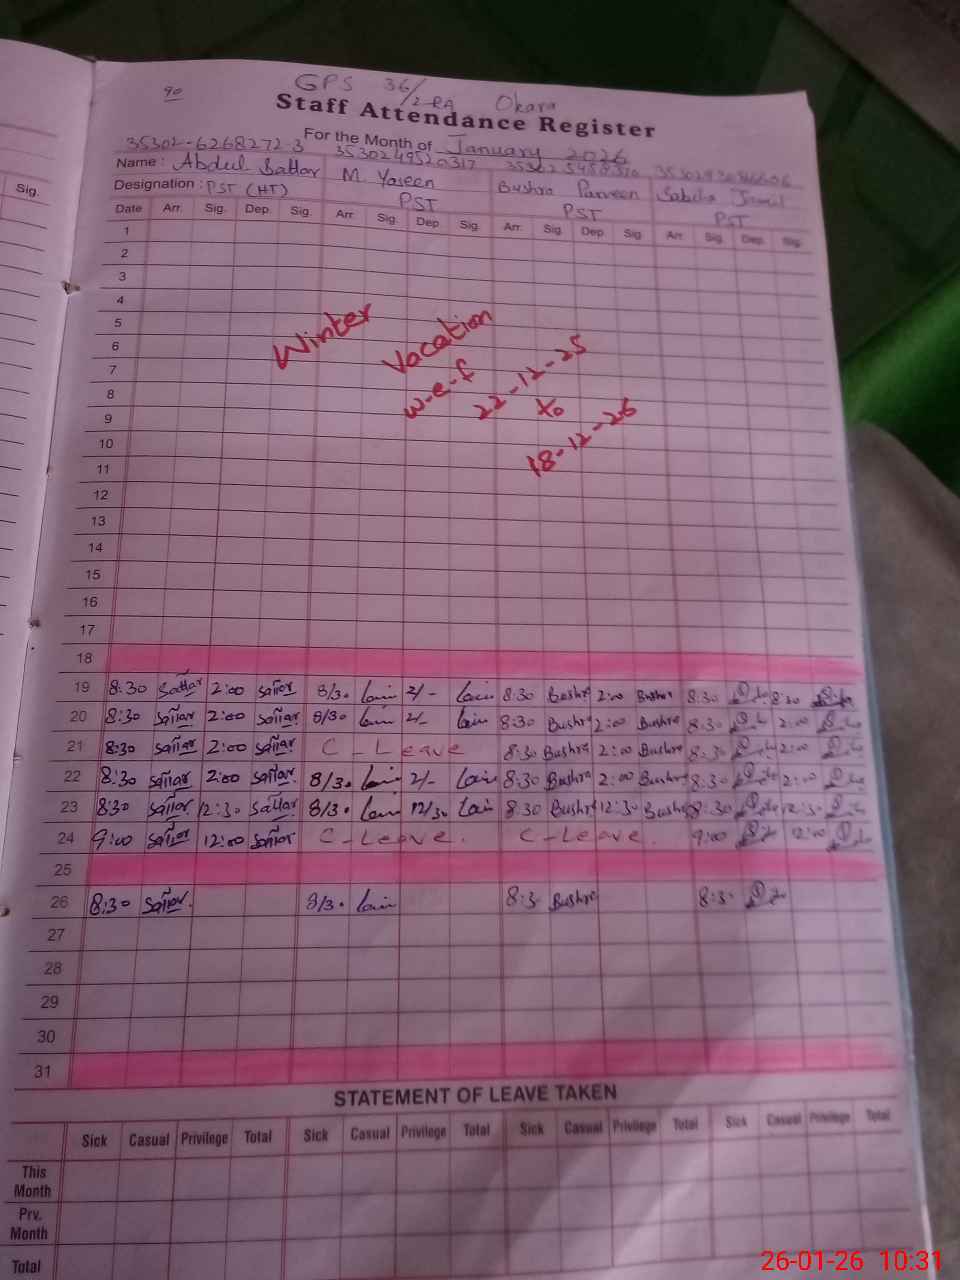 Sig.
90
GPS 36/2-RA Okara
Staff Attendance Register
For the Month of January 2026
35302-6268272-3 3530249520317
Name: Abdul Sattar M. Yaseen Bushra Parveen
Designation: PST (HT) PST PST PST
Date Arr. Sig. Dep. Sig. Arr. Sig. Dep. Sig. Arr. Sig. Dep. Sig. Arr. Sig. Dep. Sig.
1
2
3
4
5
6
7
8
9
10
11
12
13
14
15
16
17
Winter Vacation
w-e-f 22-12-25
to
18-12-26
18
19 8:30 Sattar 2:00 Sattar 8/30 2/- 8:30 Bushra 2:00 Bushra 8:30 8:30
20 8:30 Sattar 2:00 Sattar 8/30 2/- 8:30 Bushra 2:00 Bushra 8:30 2:00
21 8:30 Sattar 2:00 Sattar C-Leave 8:30 Bushra 2:00 Bushra 8:30 2:00
22 8:30 Sattar 2:00 Sattar 8/30 2/- 8:30 Bushra 2:00 Bushra 8:30 2:00
23 8:30 Sattar 12:30 Sattar 8/30 12/30 8:30 Bushra 12:30 Bushra 8:30 12:30
24 9:00 Sattar 12:00 Sattar C-Leave. C-Leave. 9:00 12:00
25
26 8:30 Sattar. 8/30 8:3- Bushra 8:3-
27
28
29
30
31
STATEMENT OF LEAVE TAKEN
Sick Casual Privilege Total Sick Casual Privilege Total Sick Casual Privilege Total Sick Casual Privilege Total
This Month
Prv. Month
Total
26-01-26 10:31